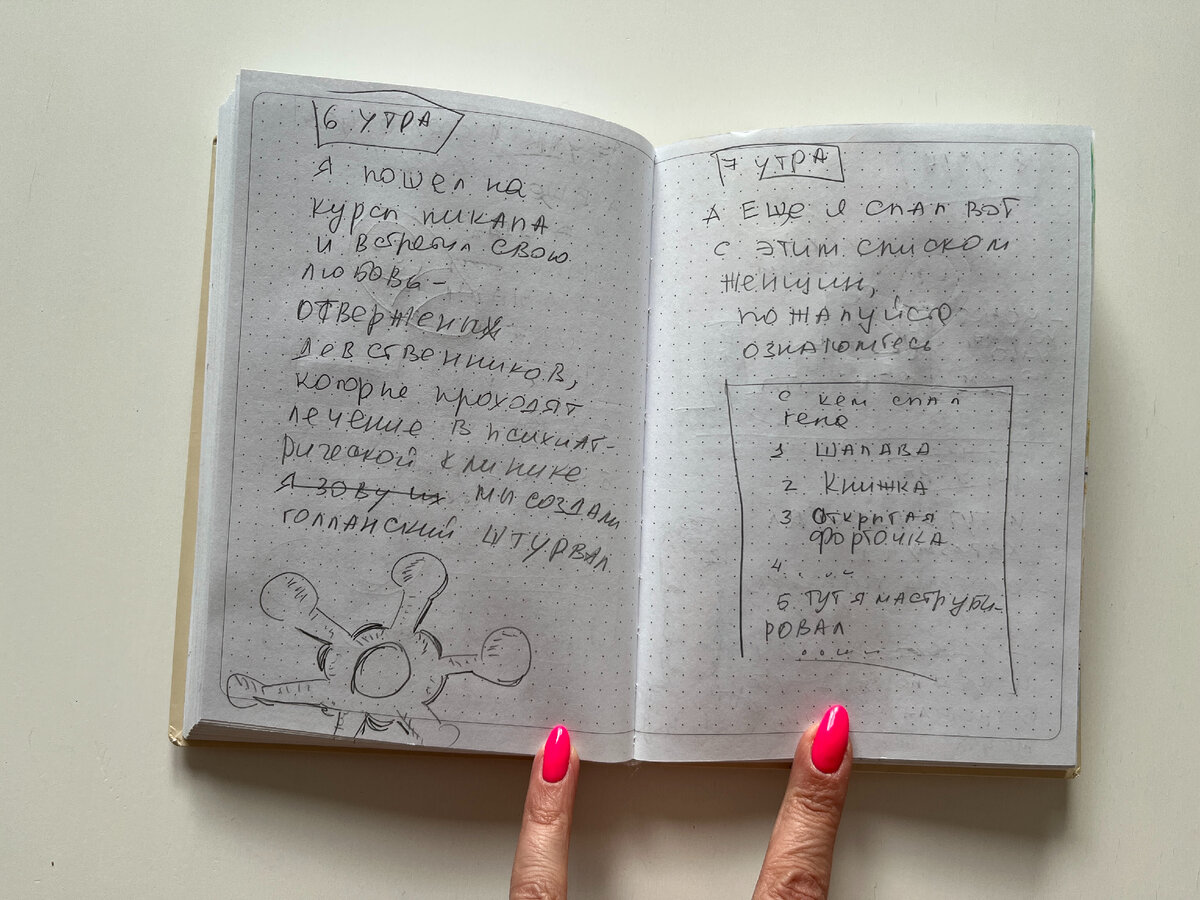 6 УТРА
Я пошел на
курсы пикапа
и встретил свою
любовь –
отверженых
девственников,
которые проходят
лечение в психиат-
рической клинике
Я зову их мы создали
голланский штурвал.
7 УТРА
А ЕЩЕ Я СПАЛ ВОТ
С ЭТИМ СПИСКОМ
ЖЕНЩИН,
ПОЖАЛУЙСТА
ОЗНАКОМТЕСЬ
С КЕМ СПАЛ
ГЕНА
1 ШАЛАВА
2 КНИЖКА
3 ОТКРЫТАЯ
ФОРТОЧКА
4 ....
5 ТУТ Я МАСТРУБИ-
РОВАЛ
.....